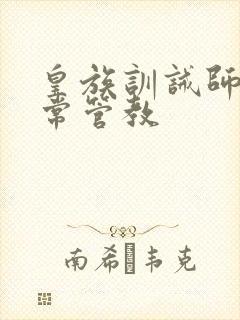 皇族訓誡師
常管教
南希·韦克